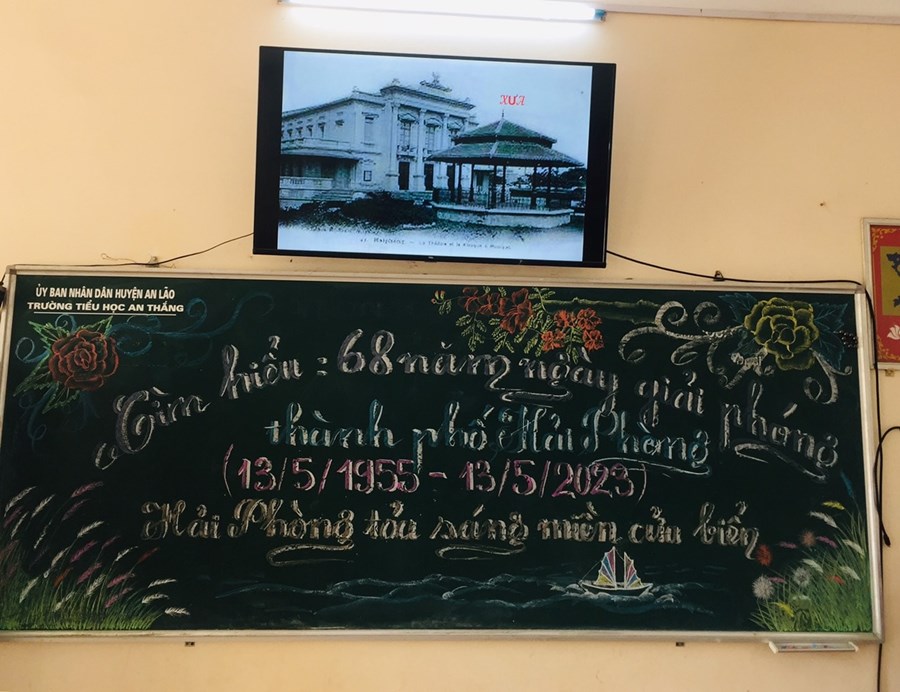 XƯA
Haiphong — Le Théâtre et le Kiosque à Musique
ỦY BAN NHÂN DÂN HUYỆN AN LÃO
TRƯỜNG TIỂU HỌC AN THẮNG
Tìm hiểu : 68 năm ngày giải phóng
thành phố Hải Phòng
(13/5/1955 - 13/5/2023)
Hải Phòng tỏa sáng miền cửa biển